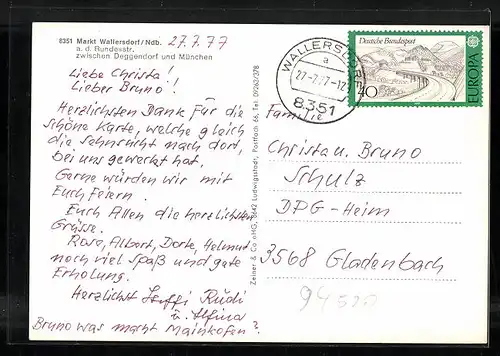 8351 Markt Wallersdorf/Ndb.
a. d. Bundesstr.
zwischen Deggendorf und München
27.7.77
Liebe Christa!
Lieber Bruno!
Herzlichsten Dank für die
schöne Karte, welche gleich
die Sehnsucht nach dort,
bei uns geweckt hat.
Gerne würden wir mit
Euch feiern.
Euch Allen die herzlichsten
Grüsse.
Rose, Albert, Dorte, Helmut
noch viel Spaß und gute
Erholung.
Herzlichst Rudi
u.
Bruno was macht Mainkofen?
Zeiner & Co oHG, 8642 Ludwigsstadt, Postfach 66, Tel. 09263/378
WALLERSDORF
a
27-7.77-12
8351
Deutsche Bundespost
40
EUROPA
Familie
Christa u. Bruno
Schulz
DPG-Heim
3568 Gladenbach